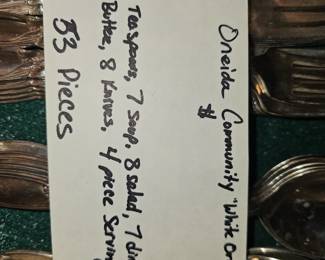 Oneida Community "White Or
$
Teaspoons, 7 Soup, 8 salad, 7 din
Butter, 8 Knives, 4 piece Serving
53 Pieces